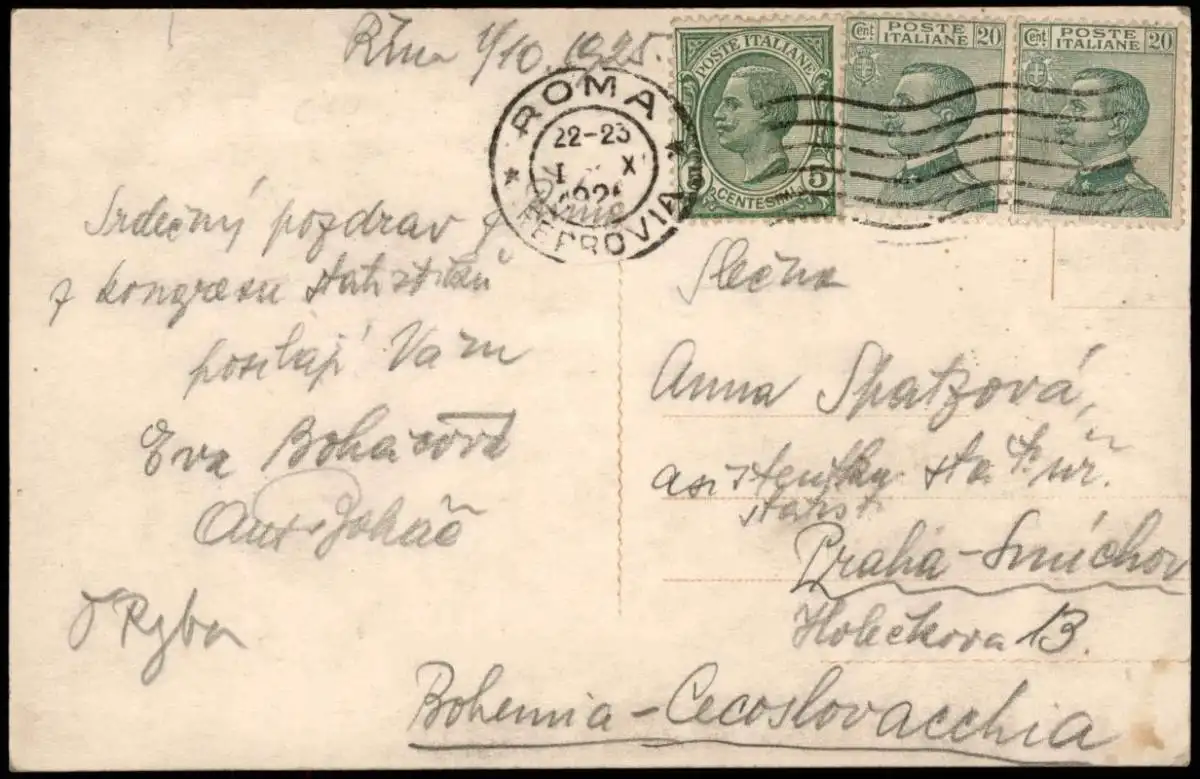 Řím 1/10. 1925.
POSTE ITALIANE
5
CENTESIMI
5
Cent POSTE ITALIANE 20
Cent POSTE ITALIANE 20
ROMA
22-23
I X
FERROVIA
Srdečný pozdrav
z kongresu statistiků
posílají Vám
Eva Boháčová
Ant. Boháč
Ryba
Slečna
Anna Spatzová,
asistentka stat. úř.
státs.
Praha-Smíchov
Holečkova 13.
Bohemia-Cecoslovacchia